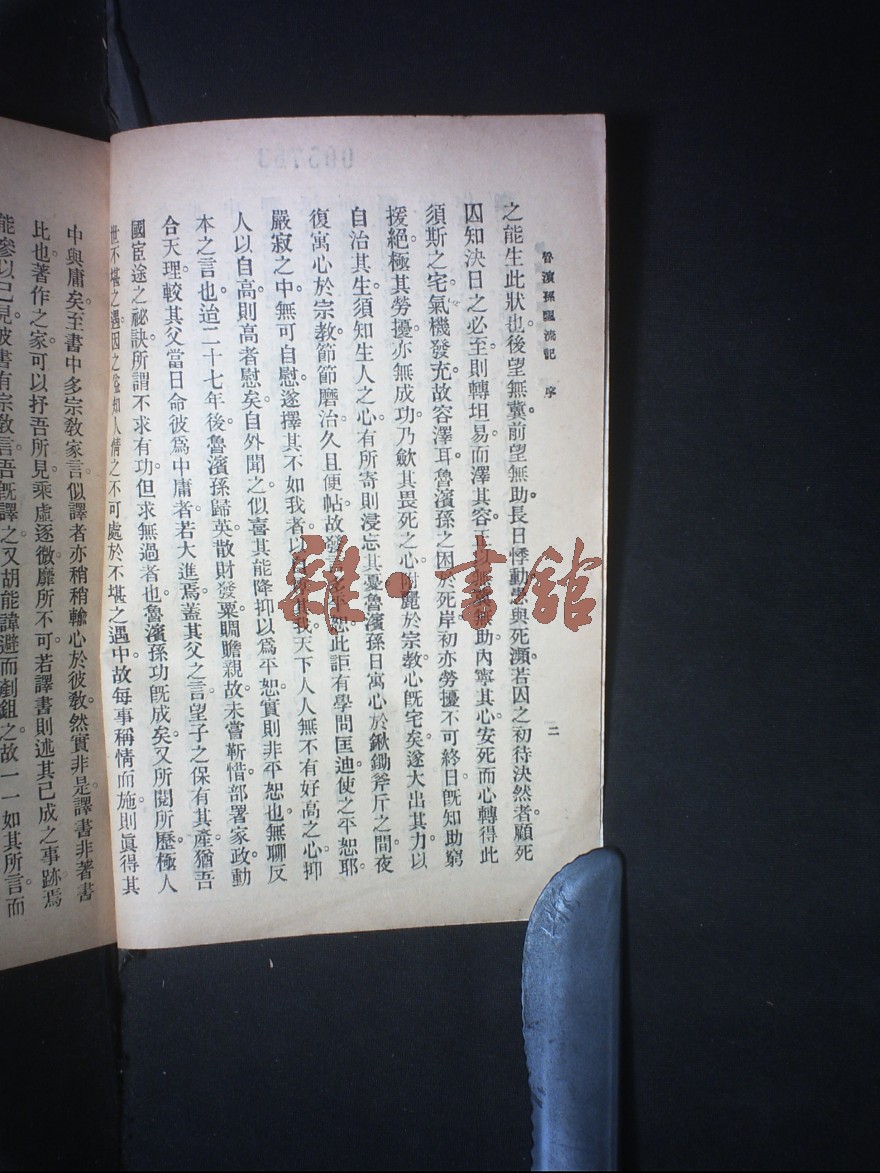 魯濱孫飄流記 序
二
之能生此狀也。後望無冀。前望無助。長日悸動。患與死瀕。若囚之初待決然者。顧死
囚知決日之必至。則轉坦易而澤其容。無助。內寧其心。安死而心轉得此
須斯之宅。氣機發充。故容澤耳。魯濱孫之困於死岸。初亦勞擾不可終日。旣知助窮
援絕。極其勞擾。亦無成功。乃斂其畏死之心。附麗於宗敎。心旣宅矣。遂大出其力。以
自治其生。須知生人之心。有所寄則浸忘其憂。魯濱孫日寓心於鍬鋤斧斤之間。夜
復寓心於宗敎。節節磨治。久且便帖。故發言平恕。此詎有學問匡迪。使之平恕耶。
嚴寂之中。無可自慰。遂擇其不如我者。以我。天下人人無不有好高之心。抑
人以自高。則高者慰矣。自外聞之。似喜其能降抑以爲平恕。實則非平恕也。無聊反
本之言也。迨二十七年後。魯濱孫歸英。散財發粟。賙贍親故。未嘗靳惜。部署家政。動
合天理。較其父當日命彼爲中庸者。若大進焉。蓋其父之言。望子之保有其產。猶吾
國宦途之祕訣。所謂不求有功。但求無過者也。魯濱孫功旣成矣。又所閱所歷。極人
世不堪之遇。因之益知人情之不可處於不堪之遇中。故每事稱情而施。則眞得其
中與庸矣。至書中多宗敎家言。似譯者亦稍稍輸心於彼敎。然實非是。譯書非著書
比也。著作之家。可以抒吾所見。乘虛逐微。靡所不可。若譯書則述其已成之事跡。焉
能參以己見。彼書有宗敎言。吾旣譯之。又胡能諱避而剷鋤之。故一一如其所言而
雜·書館